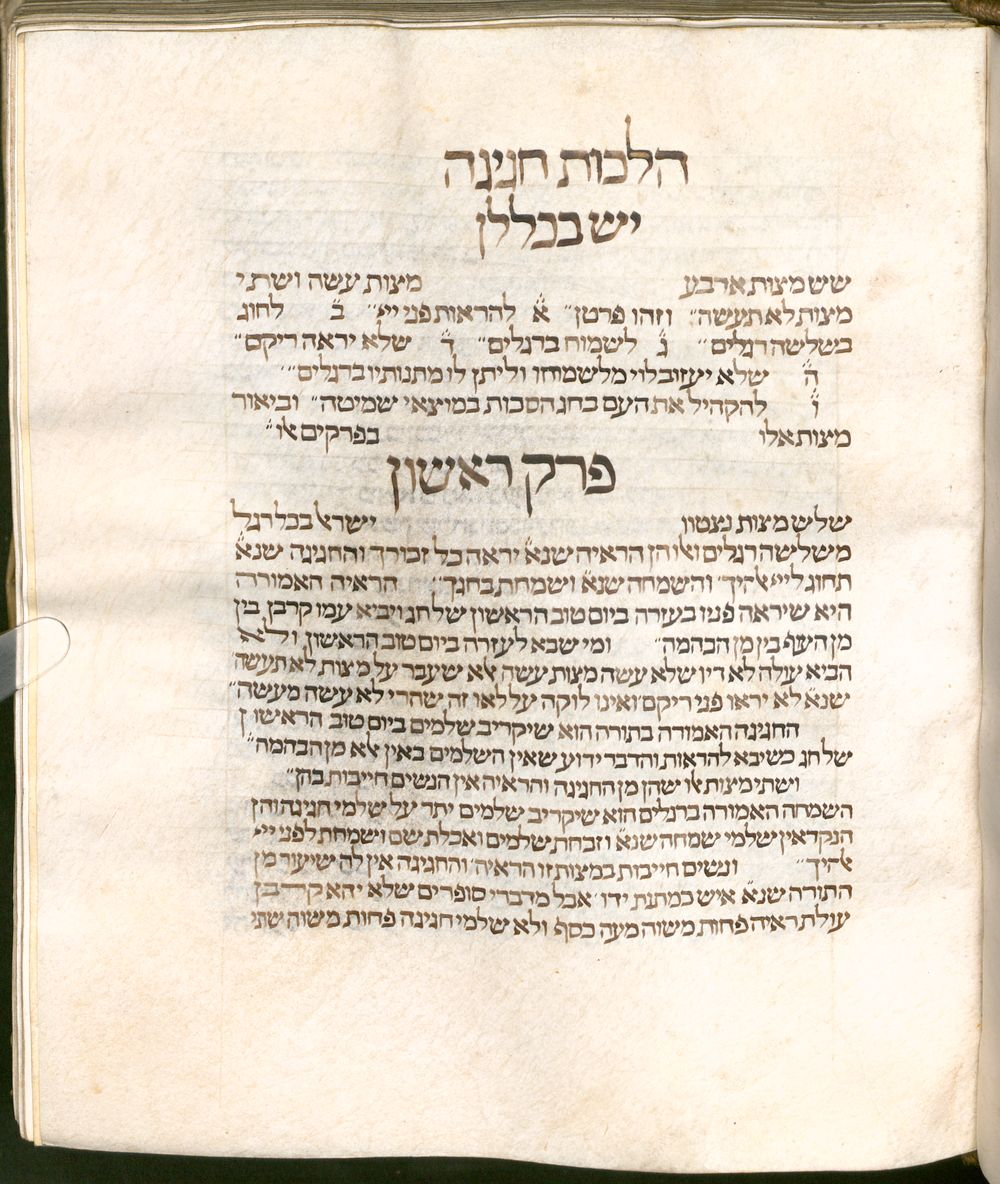 הלכות חגיגה
יש בכללן
שש מצות ארבע מצות עשה ושתי
מצות לא תעשה״ וזהו פרטן״ א̈ להראות פני ייי״ ב̈ לחוג
בשלשה רגלים״ ג̈ לשמוח ברגלים״ ד̈ שלא יראה ריקם״
ה̈ שלא יעזוב לוי מלשמוחו וליתן לו מתנותיו ברגלים״
ו̈ להקהיל את העם בחג הסכות במוצאי שמיטה״ וביאור
מצות אלו בפרקים אלו״
פרק ראשון
שלש מצות נצטוו יישראל בכל רגל
משלשה רגלים ואלו הן הראיה שנא̈ יראה כל זכורך והחגיגה שנא̈
תחוג לייי אלהיך׳ והשמחה שנא̈ ושמחת בחגך״ הראיה האמורה
היא שיראה פניו בעזרה ביום טוב הראשון שלחג ויביא עמו קרבן בין
מן העוף בין מן הבהמה״ ומי שבא לעזרה ביום טוב הראשון ולא
הביא עולה לא דיו שלא עשה מצות עשה אלא שעבר על מצות לא תעשה
שנא̈ לא יראו פני ריקם ואינו לוקה על לאו זה שהרי לא עשה מעשה״
החגיגה האמורה בתורה הוא שיקריב שלמים ביום טוב הראשון
שלחג כשיבא להראות והדבר ידוע שאין השלמים באין אלא מן הבהמה״
ושתי מצות אלו שהן מן החגיגה והראיה אין הנשים חייבות בהן״
השמחה האמורה ברגלים הוא שיקריב שלמים יתר על שלמי חגיגה והן
הנקראין שלמי שמחה שנא̈ וזבחת שלמים ואכלת שם ושמחת לפני ייי
אלהיך״ ונשים חייבות במצות זו הראיה׳ והחגיגה אין לה שיעור מן
התורה שנא̈ איש כמתנת ידו׳ אבל מדברי סופרים שלא יהא קרבן
עולת ראיה פחות משוה מעה כסף ולא שלמי חגיגה פחות משוה שתי